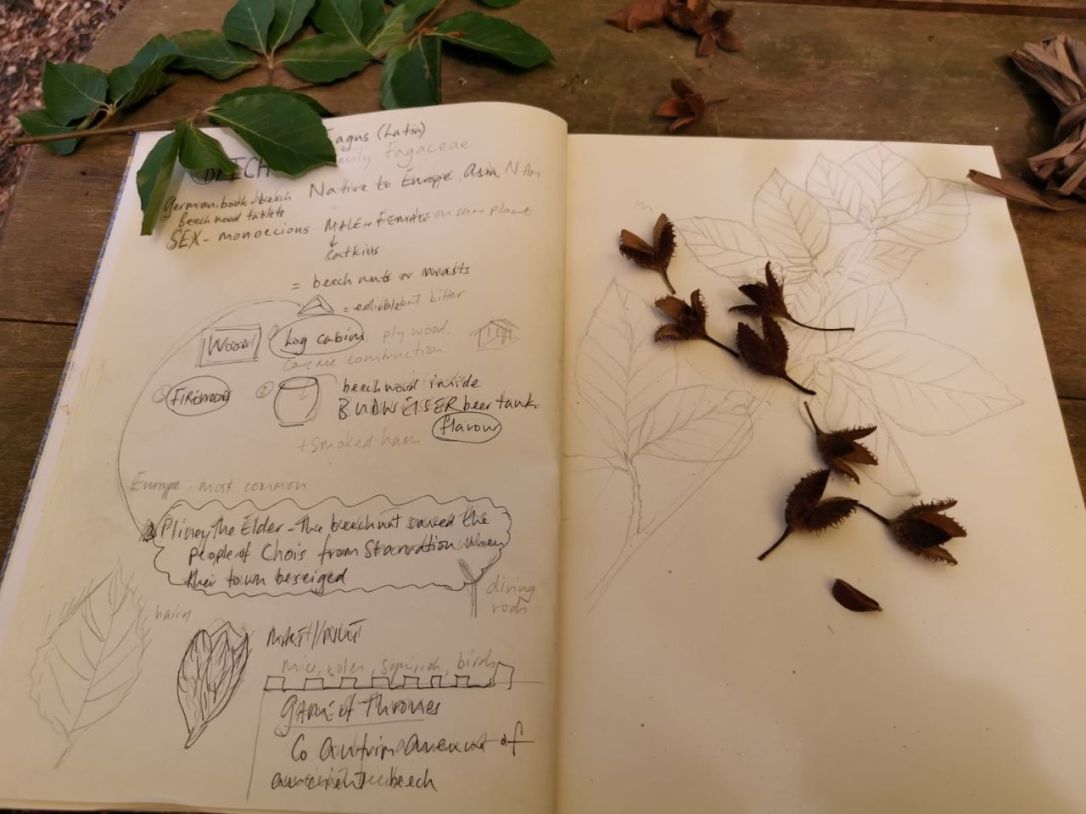 Fagus (Latin)
BEECH
family Fagaceae
Native to Europe Asia N Am
German book - beech
Beech wood tablets
SEX - monoecious. MALE + FEMALE on same plant
Catkins
= beech nuts or masts
= edible but bitter
WOOD
Log cabins ply wood,
construction
① FIREWOOD
② beech wood inside
BUDWEISSER beer tank.
flavour
+ smoked ham
Europe - most common
Pliney The Elder - The beechnut saved the
people of Chois from starvation when
their town beseiged
diving
rods
hairy
MAST/NUT
Mice, voles, squirrels, birds
GAME of Thrones
Co Antrim avenue of
beech